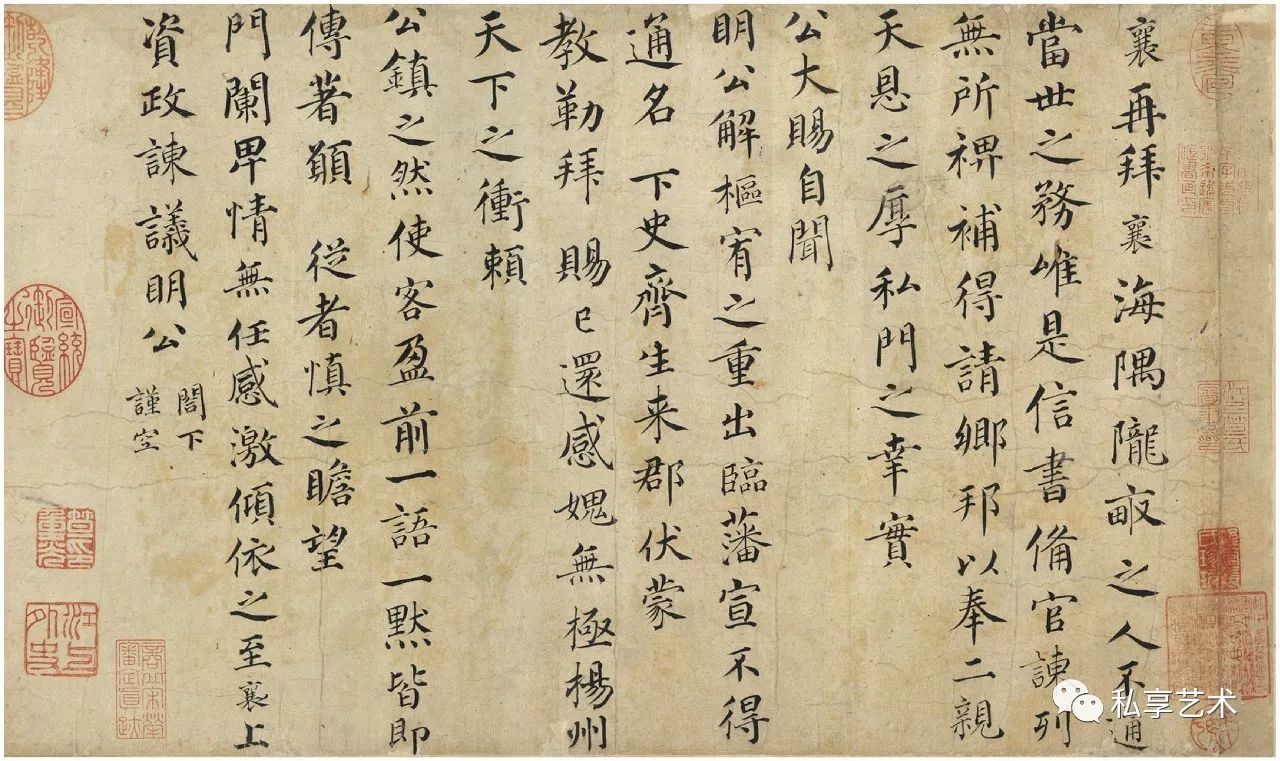 襄再拜襄海隅隴畝之人不通
當世之務唯是信書備官諫列
無所裨補得請鄉邦以奉二親
天恩之厚私門之幸實
公大賜自聞
明公解樞宥之重出臨藩宣不得
通名 下史齊生来郡伏蒙
教勒拜 賜已還感媿無極楊州
天下之衝賴
公鎮之然使客盈前一語一默皆即
傳著願 從者慎之瞻望
門闌卑情無任感激傾依之至襄上
資政諫議明公
閤下
謹空
宣統
御覽
之寶
私享艺术